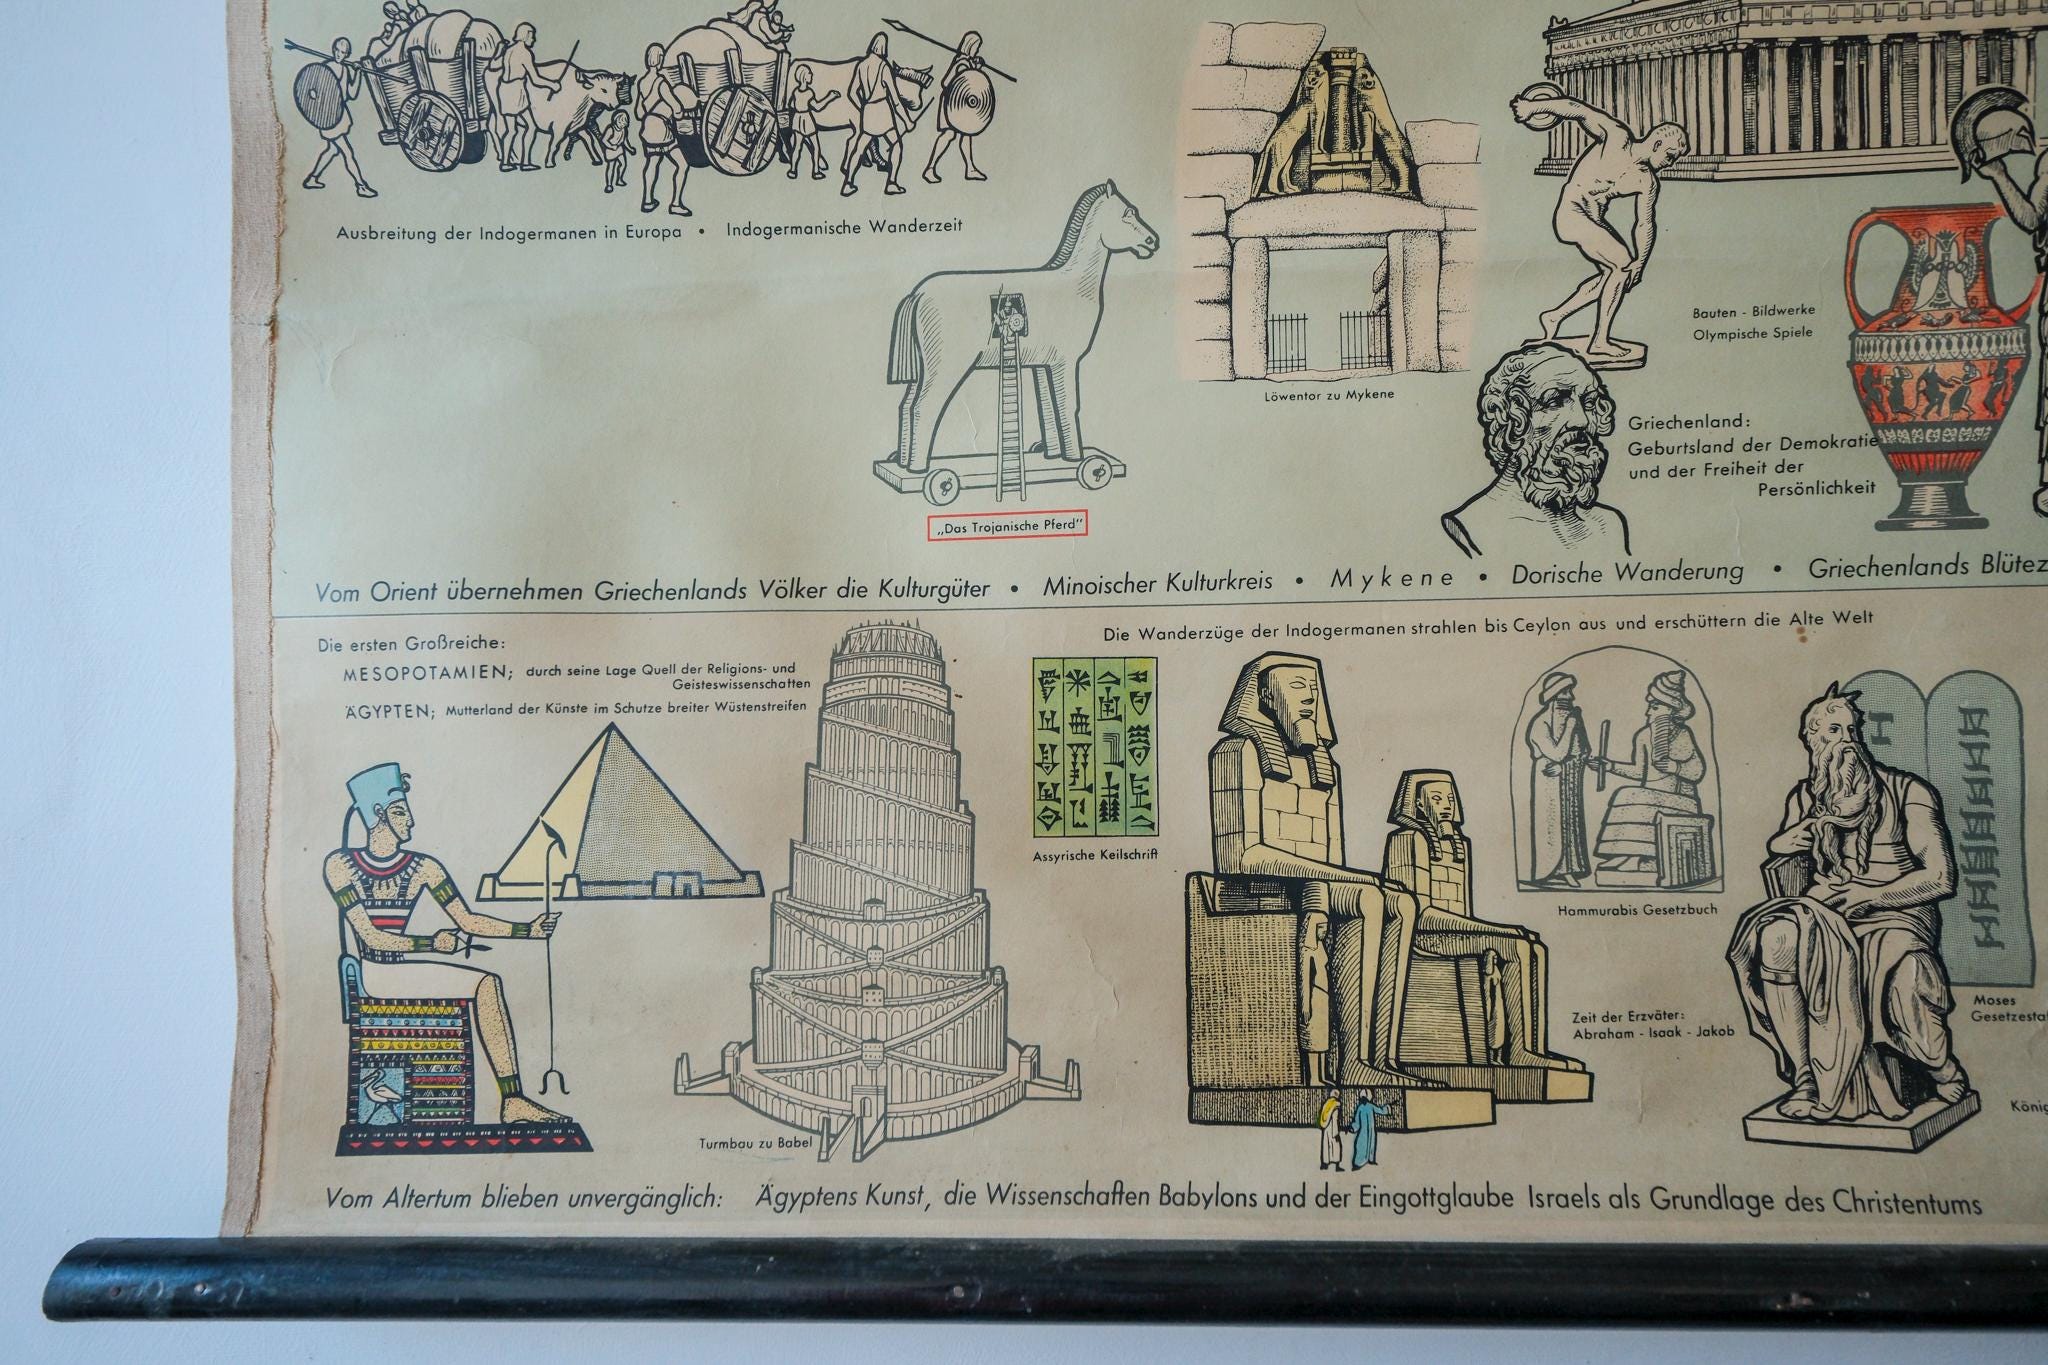 Ausbreitung der Indogermanen in Europa • Indogermanische Wanderzeit
Löwentor zu Mykene
Bauten - Bildwerke
Olympische Spiele
Griechenland:
Geburtsland der Demokratie
und der Freiheit der
Persönlichkeit
„Das Trojanische Pferd“
Vom Orient übernehmen Griechenlands Völker die Kulturgüter • Minoischer Kulturkreis • Mykene • Dorische Wanderung • Griechenlands
Die Wanderzüge der Indogermanen strahlen bis Ceylon aus und erschüttern die Alte Welt
Die ersten Großreiche:
MESOPOTAMIEN; durch seine Lage Quell der Religions- und
Geisteswissenschaften
ÄGYPTEN; Mutterland der Künste im Schutze breiter Wüstenstreifen
Assyrische Keilschrift
Hammurabis Gesetzbuch
Moses
Zeit der Erzväter:
Abraham - Isaak - Jakob
Turmbau zu Babel
Vom Altertum blieben unvergänglich: Ägyptens Kunst, die Wissenschaften Babylons und der Eingottglaube Israels als Grundlage des Christentums